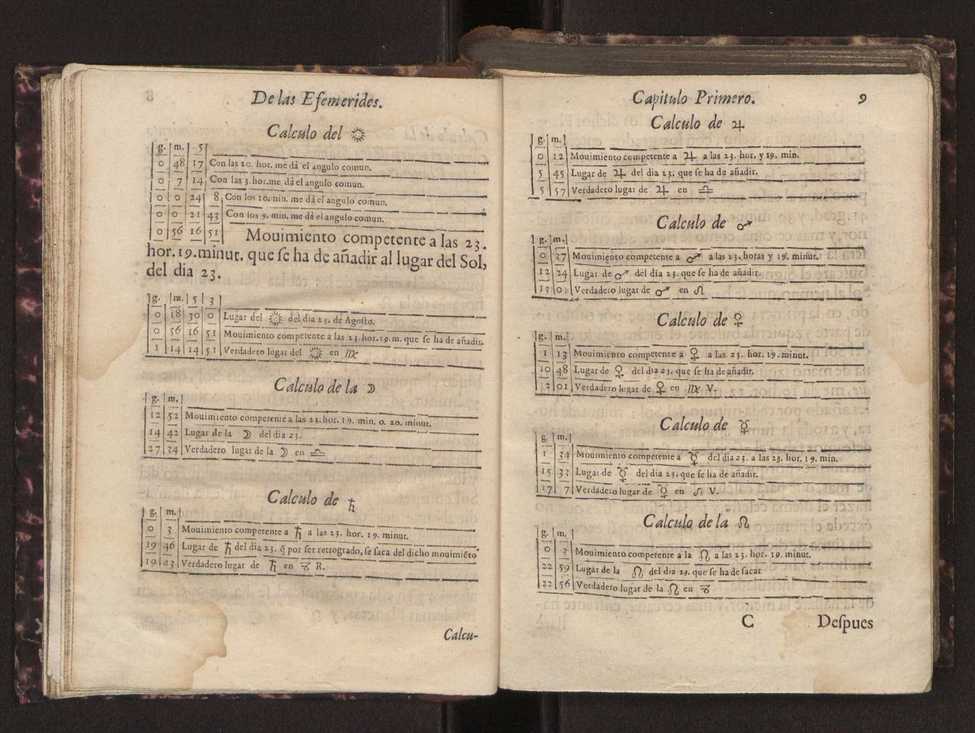 8
De las Efemerides.
Calculo del ☼
g. m. 5
0 48 17 Con las 20. hor. me dá el angulo comun.
0 7 14 Con las 3. hor. me dá el angulo comun.
0 0 24 8 Con los 10. min. me dá el angulo comun.
0 0 21 43 Con los 9. min. me dá el angulo comun.
0 56 16 51 Mouimiento competente a las 23.
hor. 19. minut. que se ha de añadir al lugar del Sol,
del dia 23.
g. m. 5 3
0 18 30 0 Lugar del ☼ del dia 23. de Agosto.
0 56 16 51 Mouimiento competente a las 23. hor. 19. m. que se ha de añadir.
1 14 14 51 Verdadero lugar del ☼ en ♍
Calculo de la ☽
g. m.
12 52 Mouimiento competente a las 23. hor. 19. min. o. 20. minut.
14 42 Lugar de la ☽ del dia 23.
27 34 Verdadero lugar de la ☽ en ♎
Calculo de ♄
g. m.
0 3 Mouimiento competente a ♄ a las 23. hor. 19. minut.
19 46 Lugar de ♄ del dia 23. q̃ por ser retrogrado, se saca del dicho mouimiẽto
19 43 Verdadero lugar de ♄ en ♑ R.
Calcu-
Capitulo Primero. 9
Calculo de ♃
g. m.
0 12 Mouimiento competente a ♃ a las 23. hor. y 19. min.
5 45 Lugar de ♃ del dia 23. que se ha de añadir.
5 57 Verdadero lugar de ♃ en ♎
Calculo de ♂
g. m.
0 37 Mouimiento competente a ♂ a las 23. horas y 19. minut.
12 24 Lugar de ♂ del dia 23. que se ha de añadir.
13 0 Verdadero lugar de ♂ en ♌
Calculo de ♀
g. m.
1 13 Mouimiento competente a ♀ a las 23. hor. 19. minut.
10 48 Lugar de ♀ del dia 23. que se ha de añadir.
12 01 Verdadero lugar de ♀ en ♍ V.
Calculo de ☿
g. m.
1 34 Mouimiento competente a ☿ del dia 23. a las 23. hor. 19. min.
15 33 Lugar de ☿ del dia 23. que se ha de añadir.
17 7 Verdadero lugar de ☿ en ♌ V.
Calculo de la ☊
g. m.
0 3 Mouimiento competente a la ☊ a las 23. hor. 19. minut.
22 59 Lugar de la ☊ del dia 23. que se ha de sacar
22 56 Verdadero lugar de la ☊ en ♑
C Despues